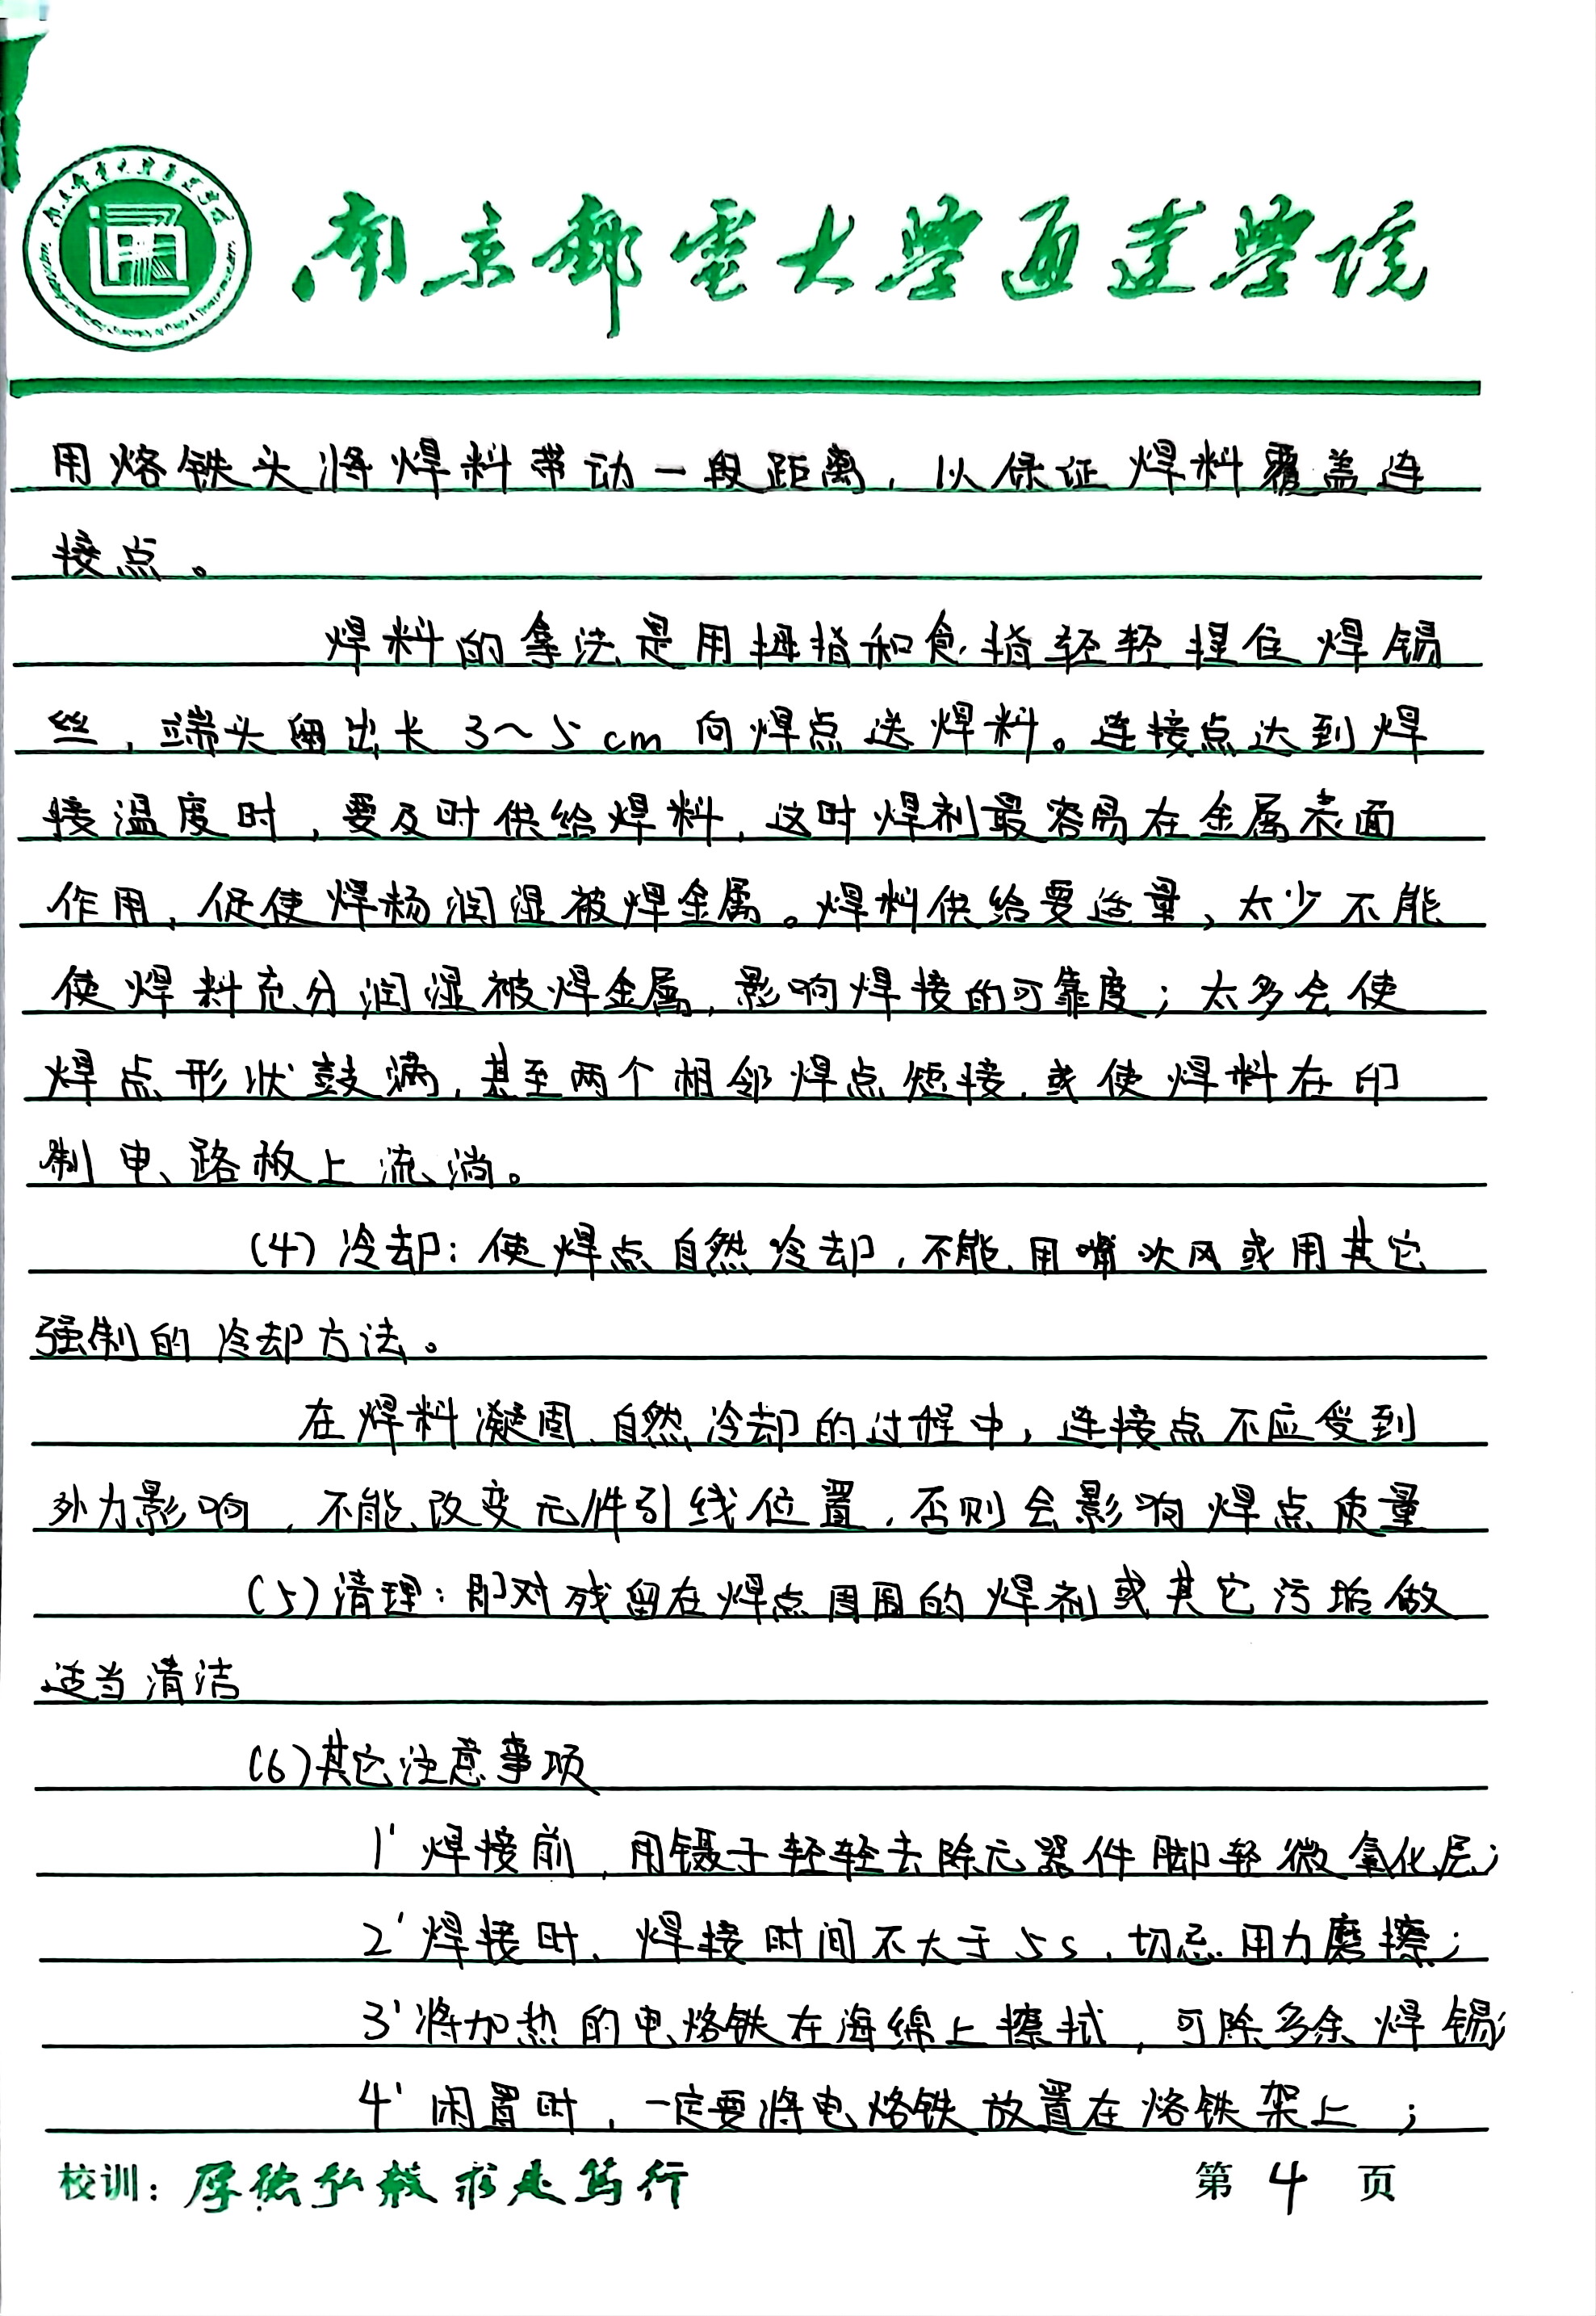 南京邮电大学通达学院
用烙铁头将焊料带动一段距离，以保证焊料覆盖连
接点。
焊料的拿法是用拇指和食指轻轻捏住焊锡
丝，端头留出长3～5cm向焊点送焊料。连接点达到焊
接温度时，要及时供给焊料，这时焊剂最容易在金属表面
作用，促使焊杨润湿被焊金属。焊料供给要适量，太少不能
使焊料充分润湿被焊金属，影响焊接的可靠度；太多会使
焊点形状鼓满，甚至两个相邻焊点短接，或使焊料在印
制电路板上流淌。
(4)冷却：使焊点自然冷却，不能用嘴吹风或用其它
强制的冷却方法。
在焊料凝固、自然冷却的过程中，连接点不应受到
外力影响，不能改变元件引线位置，否则会影响焊点质量
(5)清理：即对残留在焊点周围的焊剂或其它污垢做
适当清洁
(6)其它注意事项
1'焊接前，用镊子轻轻去除元器件脚轻微氧化层；
2'焊接时，焊接时间不大于5s，切忌用力磨擦；
3'将加热的电烙铁在海绵上擦拭，可除多余焊锡；
4'闲置时，一定要将电烙铁放置在烙铁架上；
校训：厚德弘毅 求是笃行
第4页